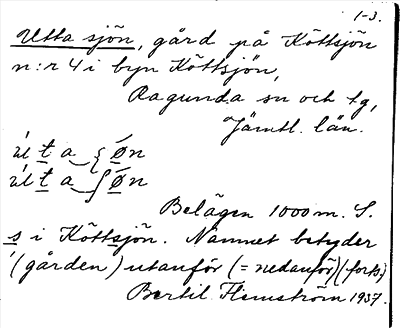 1-3.
Utta sjön, gård på Köttsjön
n:r 4 i byn Köttsjön,
Ragunda sn och tg,
Jämtl. län.
Belägen 1000 m. S.
s i Köttsjön. Namnet betyder
'(gården) utanför (= nedanför) (forts.)
Bertil Flemström 1937.